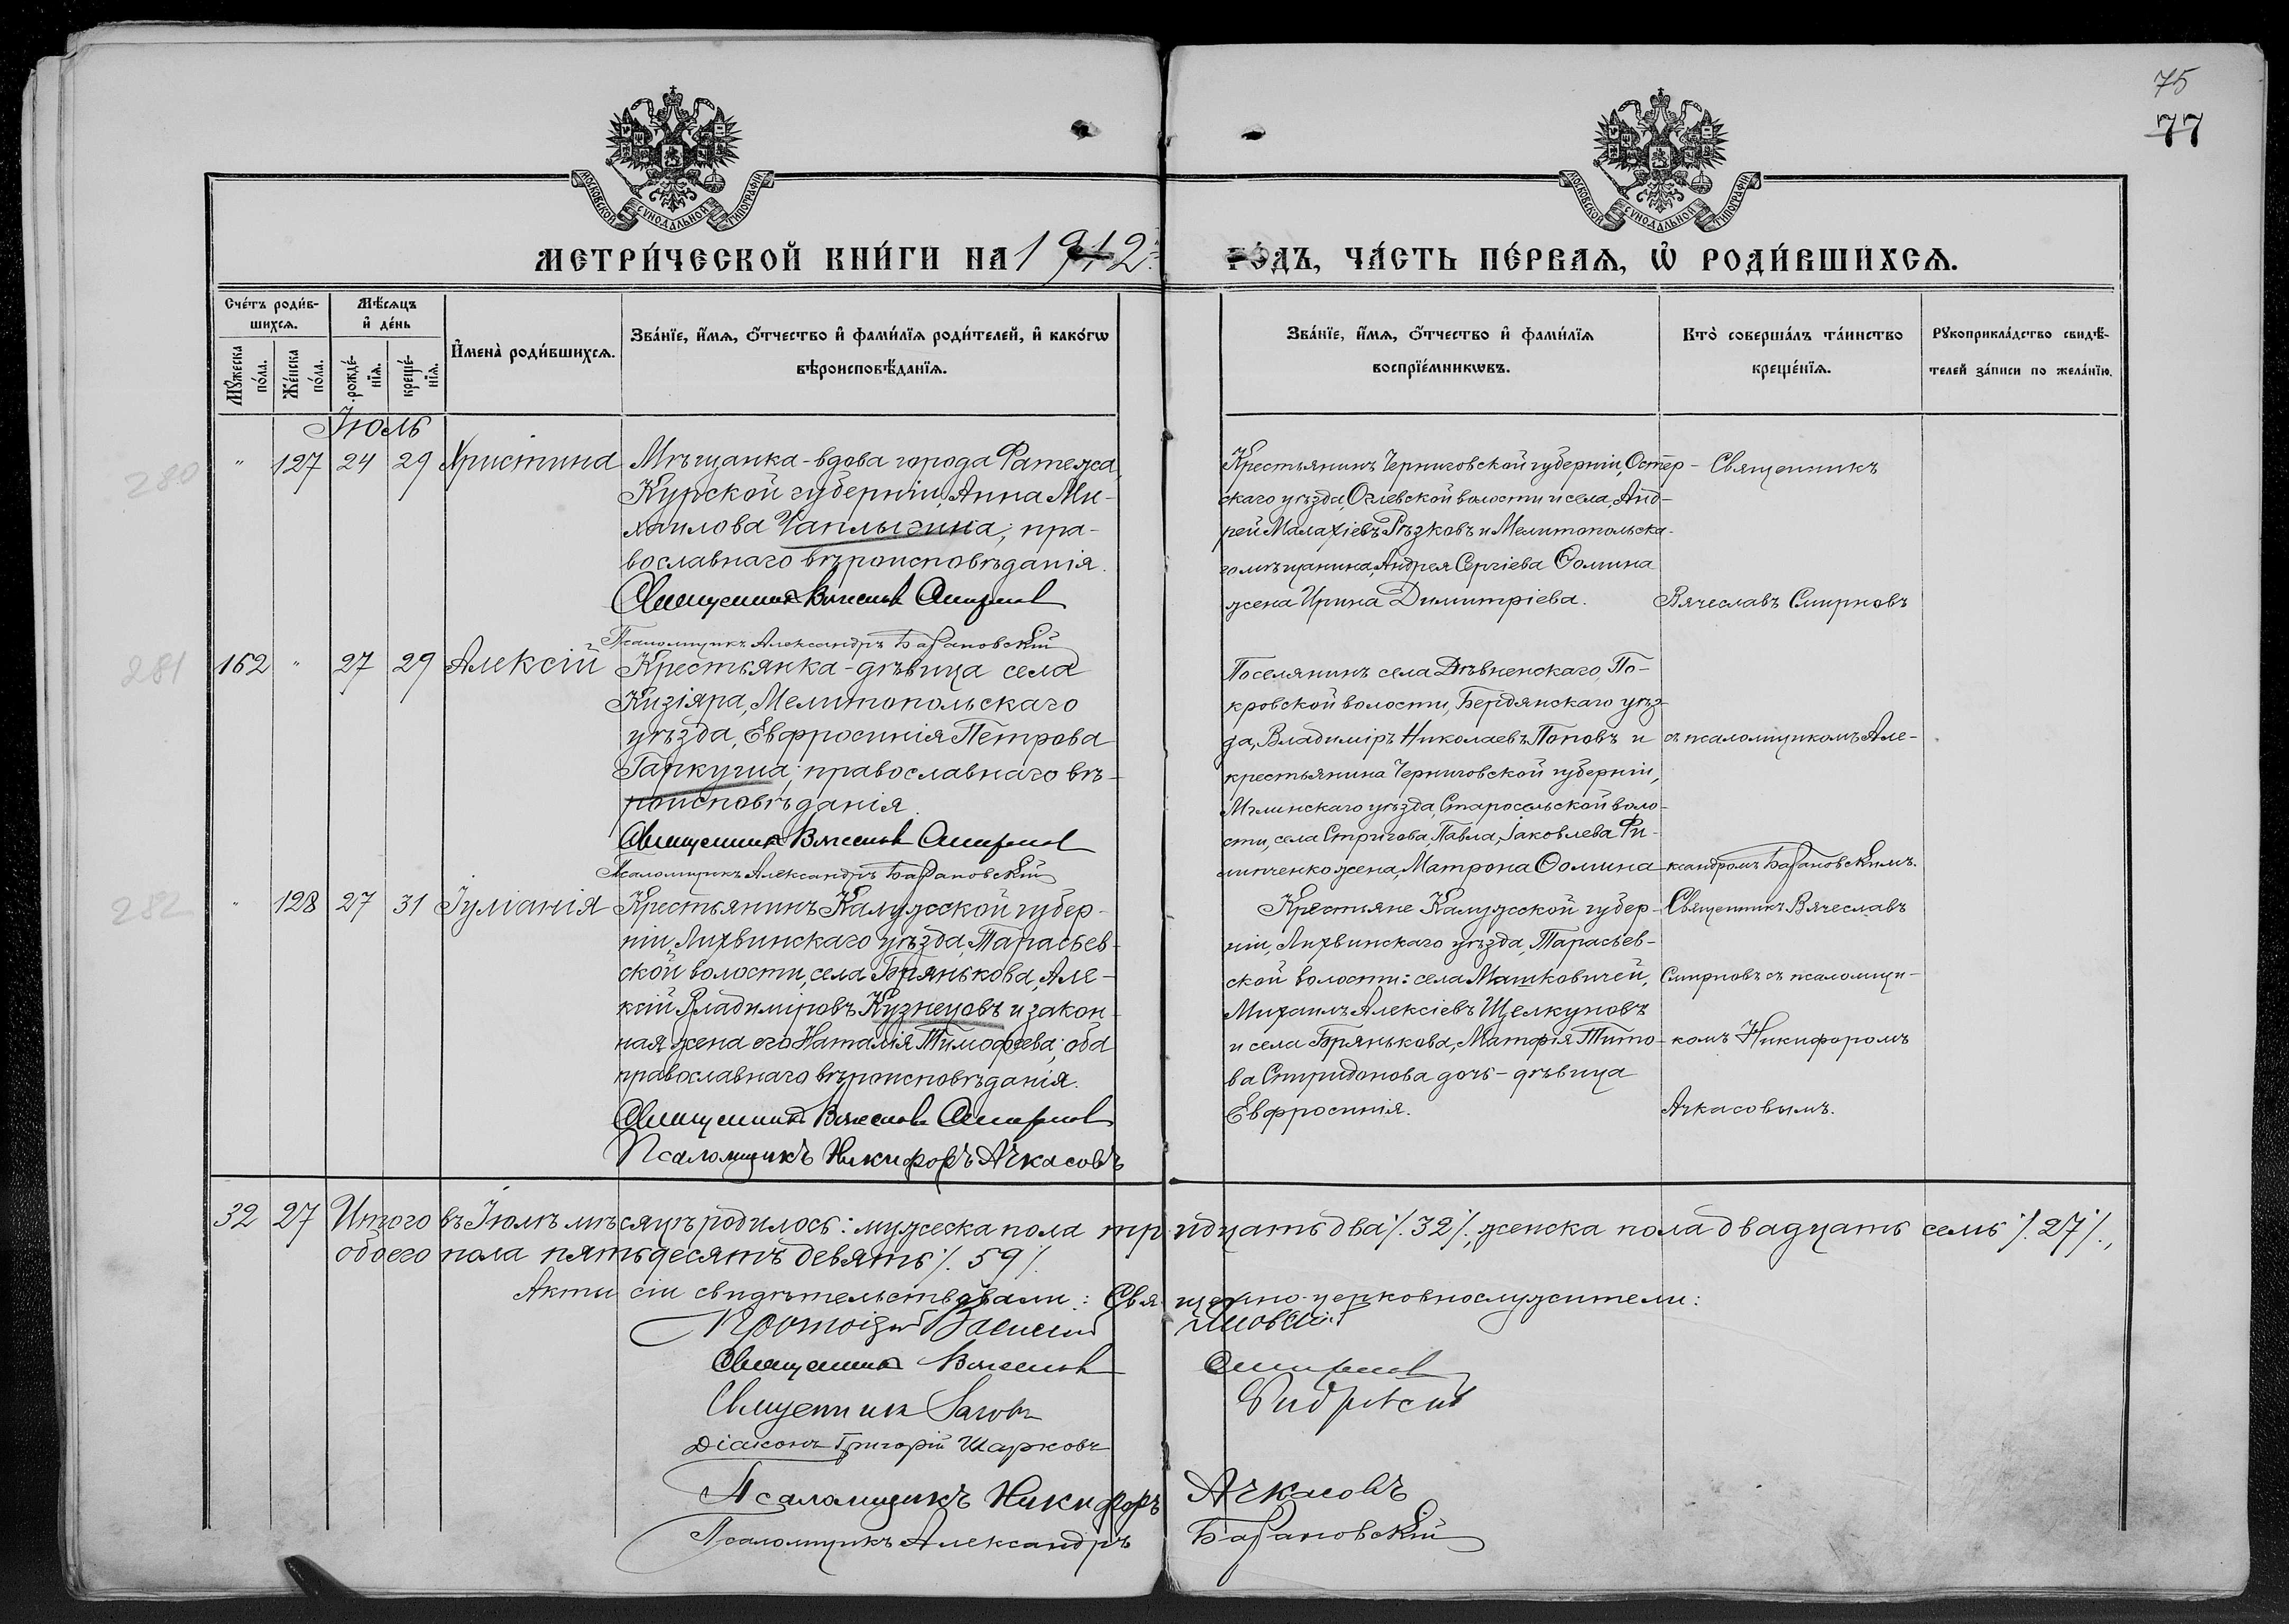 75
77
МОСКОВСКОЙ СѴНОДАЛЬНОЙ ТИПОГРАФІИ
МОСКОВСКОЙ СѴНОДАЛЬНОЙ ТИПОГРАФІИ
МЕТРИ́ЧЕСКОЙ КНИ́ГИ НА 1912
ГО́ДЪ, ЧА́СТЬ ПЕ́РВАѦ, Ѡ РОДИ́ВШИХСѦ.
Сче́тъ роди́в-
шихсѧ.
Мꙋ́жеска по́ла.
Же́нска по́ла.
Мѣ́сѧцъ
и҆ де́нь
рожде́-
нїѧ.
креще́-
нїѧ.
И҆мена̀ роди́вшихсѧ.
Зва́нїе, и҆́мѧ, ѻ҆́тчество и҆ фами́лїѧ роди́телей, и҆ како́гѡ
вѣроисповѣ́данїѧ.
Зва́нїе, и҆́мѧ, ѻ҆́тчество и҆ фами́лїѧ
воспрїе́мникѡвъ.
Кто̀ соверша́лъ та́инство
креще́нїѧ.
Рꙋкоприкла́дство свидѣ́-
телей за́писи по жела́нїю.
Іюль
280
" 127 24 29 Христина
Мѣщанка-вдова города Фатежа,
Курской губерніи, Анна Ми-
хаилова Чаплыгина; пра-
вославнаго вѣроисповѣданія.
Священникъ Вячеславъ Смирновъ
Псаломщикъ Александръ Барановскій
Крестьянинъ Черниговской губерніи, Остер-
скаго уѣзда, Олевской волости и села, Анд-
рей Малахіевъ Рѣзковъ и Мелитопольска-
го мѣщанина, Андрея Сергіева Ѳомина
жена Ирина Димитріева.
Священникъ
Вячеславъ Смирновъ
281
162 " 27 29 Алексій
Крестьянка-дѣвица села
Кизіяра, Мелитопольскаго
уѣзда, Евфросинія Петрова
Гаркуша; православнаго вѣ-
роисповѣданія.
Священникъ Вячеславъ Смирновъ
Псаломщикъ Александръ Барановскій
Поселянинъ села Дѣвненскаго, По-
кровской волости, Бердянскаго уѣз-
да, Владиміръ Николаевъ Поповъ и
крестьянина Черниговской губерніи,
Мглинскаго уѣзда, Старосельской воло-
сти, села Стригова, Павла Іаковлева Фи-
липченко жена, Матрона Ѳомина
съ псаломщикомъ Але-
ксандромъ Барановскимъ.
282
" 128 27 31 Іуліанія
Крестьянинъ Калужской губер-
ніи, Лихвинскаго уѣзда, Тарасьев-
ской волости, села Брянькова, Але-
ксій Владиміровъ Кузнецовъ и закон-
ная жена его Наталія Тимофеева; оба
православнаго вѣроисповѣданія.
Священникъ Вячеславъ Смирновъ
Псаломщикъ Никифоръ Ачкасовъ
Крестьяне Калужской губер-
ніи, Лихвинскаго уѣзда, Тарасьев-
ской волости: села Машковичей,
Михаилъ Алексіевъ Щелкуновъ
и села Брянькова, Матфія Тито-
ва Спиридонова дочь-дѣвица
Евфросинія.
Священникъ Вячеславъ
Смирновъ съ псаломщи-
комъ Никифоромъ
Ачкасовымъ.
32 27 Итого въ Іюлѣ мѣсяцѣ родилось: мужеска пола тридцать два ./. 32 ./., женска пола двадцать семь ./. 27 ./.,
обоего пола пятьдесятъ девять ./. 59 ./.
Акты сіи свидѣтельствовали: Священно-церковнослужители:
Протоіерей
Священникъ Вячеславъ Смирновъ
Священникъ Іаковъ
Діаконъ Григорій Шарковъ
Псаломщикъ Никифоръ Ачкасовъ
Псаломщикъ Александръ Барановскій